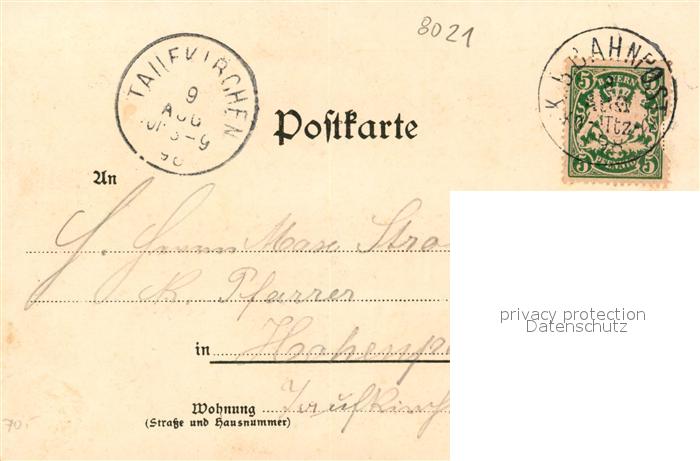 8021
TAUFKIRCHEN
9
AUG
98
K.B.BAHNPOST
BAYERN
5 5
PFENNIG
5 5
Postkarte
An
H. Herrn Max
K. Pfarrer
in
Wohnung Taufkirch
(Straße und Hausnummer)
70.-
privacy protection
Datenschutz